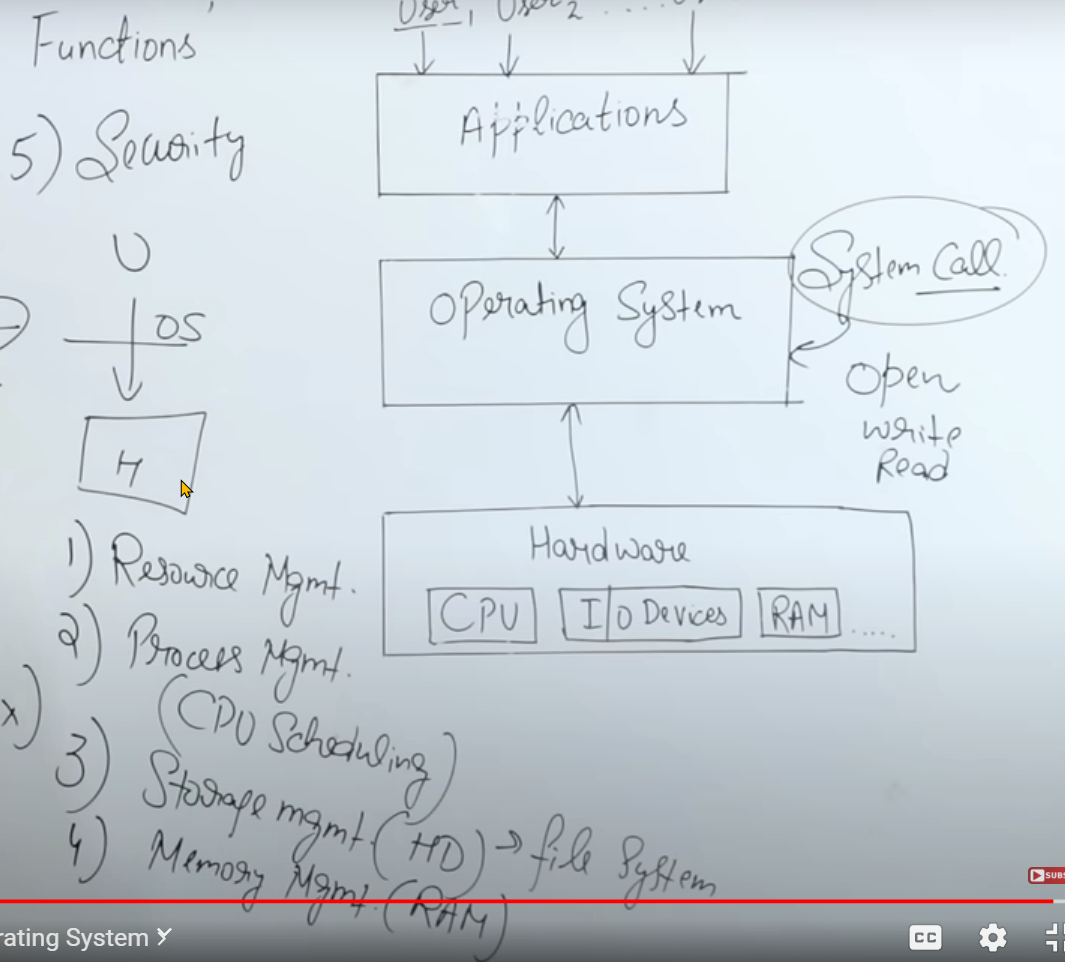 Functions
5) Security
U
OS
H
1) Resource Mgmt.
2) Process Mgmt.
(CPU Scheduling)
x)
3) Storage mgmt. (HD) → file System
4) Memory Mgmt. (RAM)
User1 User2 .....
Applications
Operating System
System Call
Open
write
Read
Hardware
CPU
I/O Devices
RAM .....
rating System
CC
SUBS